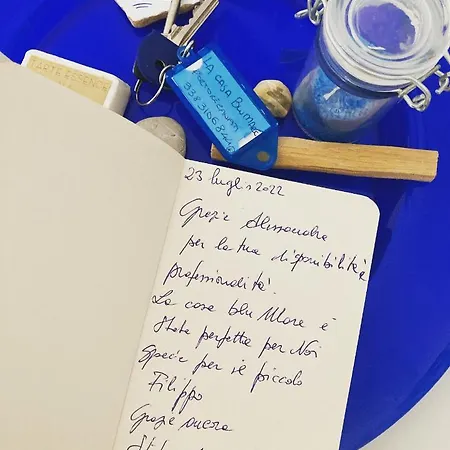 LA CASA BLU MARE
23 luglio 2022
Grazie Alessandra
per la tua disponibilità e
professionalità.
La casa blu Mare è
Stata perfetta per Noi
Specie per il piccolo
Filippo
Grazie ancora